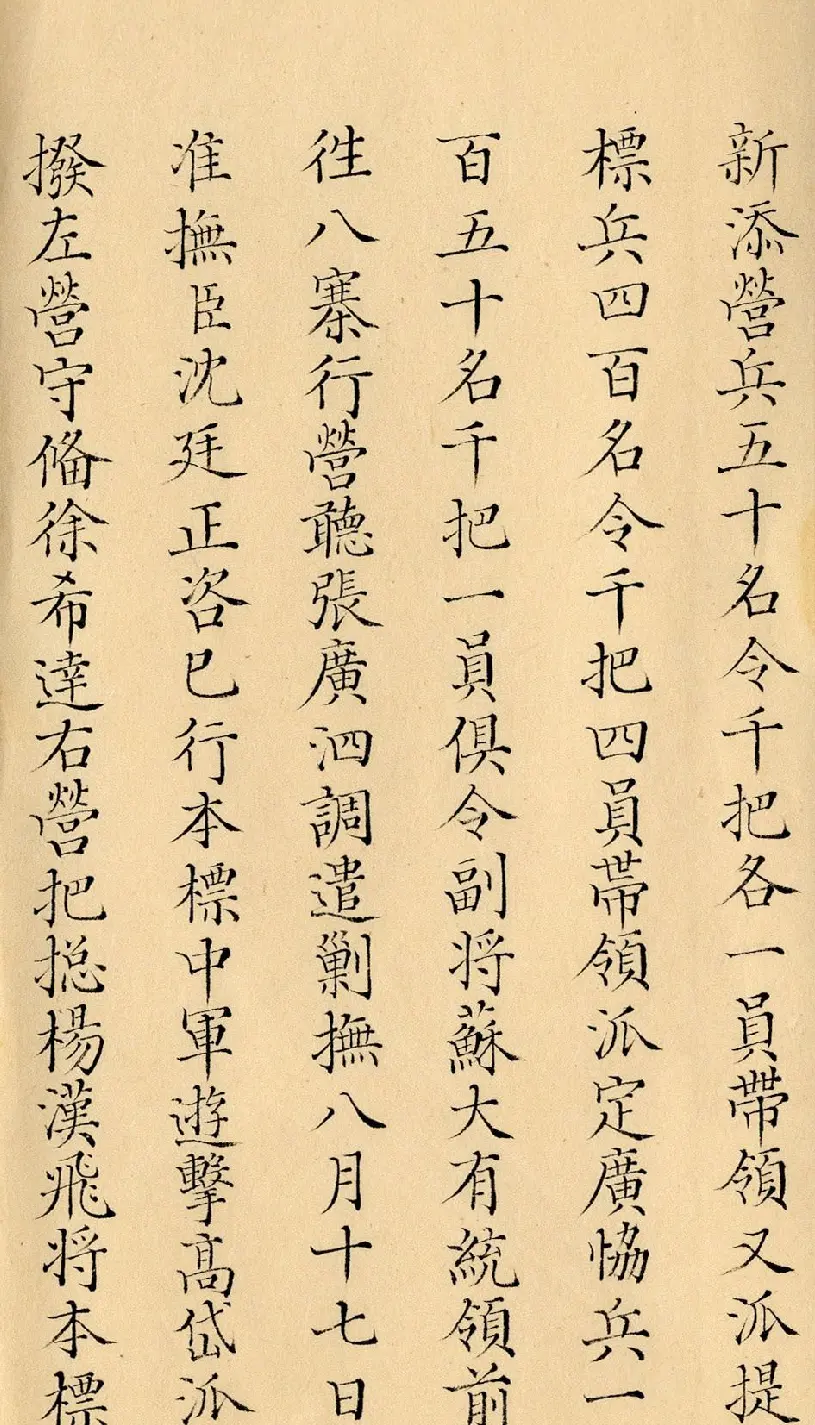 新添營兵五十名令千把各一員帶領又派提
標兵四百名令千把四員帶領派定廣恊兵一
百五十名千把一員俱令副将蘇大有統領前
徃八寨行營聽張廣泗調遣剿撫八月十七日
准撫臣沈廷正咨巳行本標中軍遊擊髙岱派
撥左營守俻徐希達右營把捴楊漢飛将本標